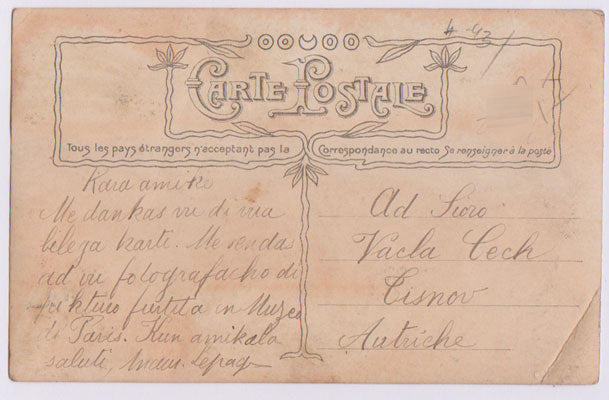 4-93
CARTE POSTALE
Tous les pays étrangers n'acceptant pas la Correspondance au recto Se renseigner à la poste
Kara amiko
Me dankas vu di vua
bela karti. Me sendas
ad vu fotografacho di
furtita in Muzeo
di Paris. Kun amikala
saluti,
Ad Sioro
Vacla Cech
Tisnov
Autriche